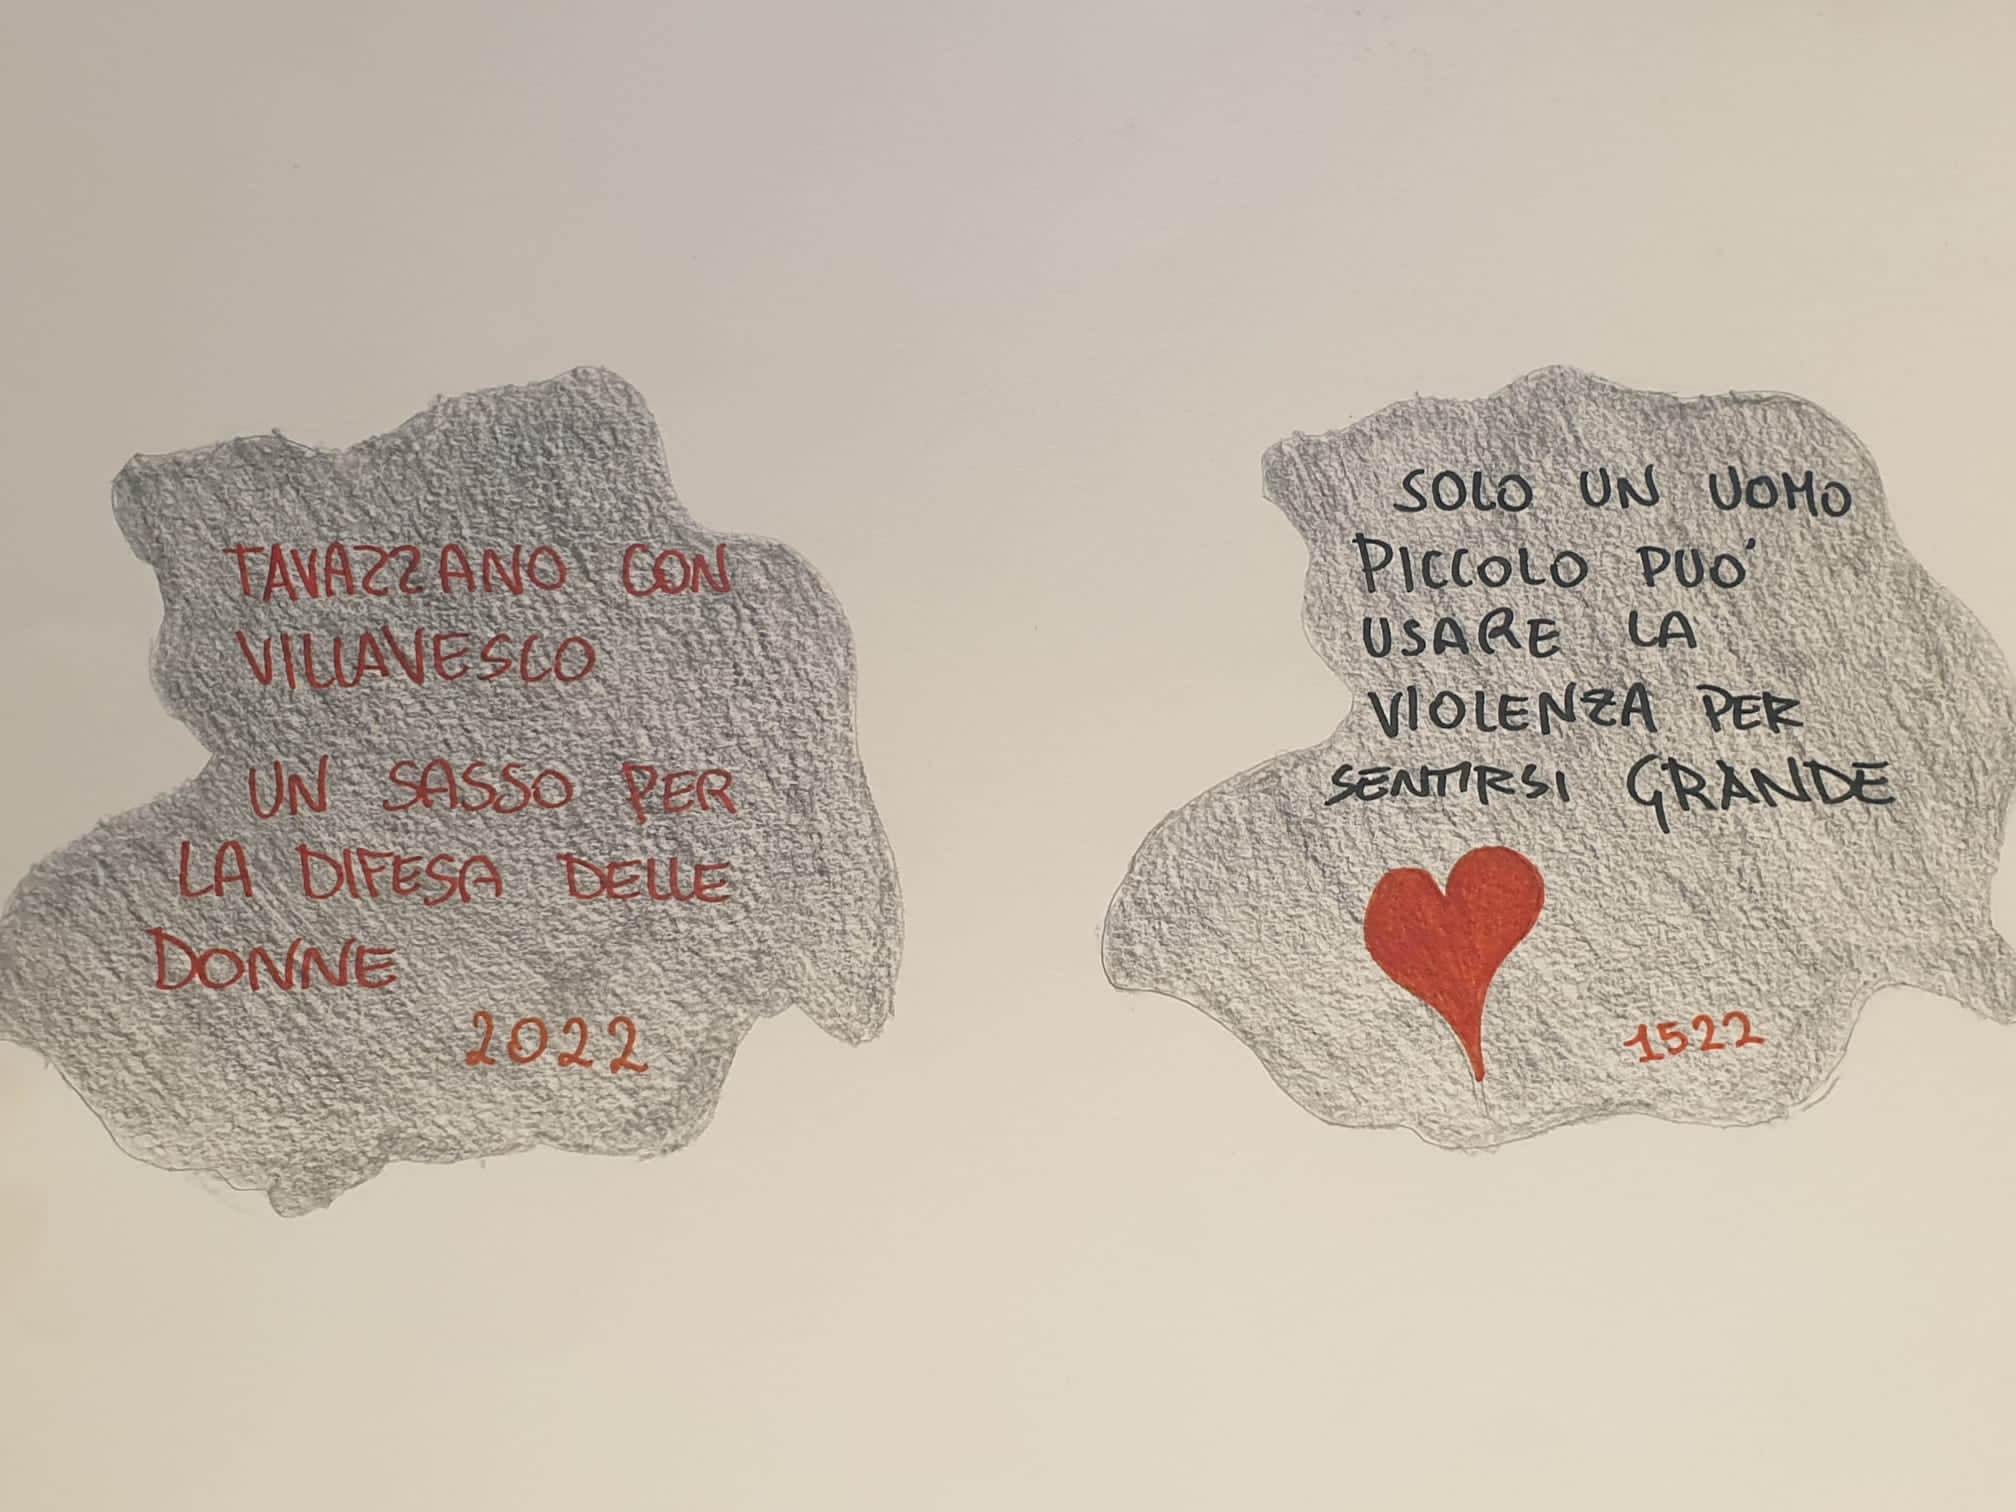 TAVAZZANO CON
VILLAVESCO
UN SASSO PER
LA DIFESA DELLE
DONNE
2022
SOLO UN UOMO
PICCOLO PUO'
USARE LA
VIOLENZA PER
SENTIRSI GRANDE
1522